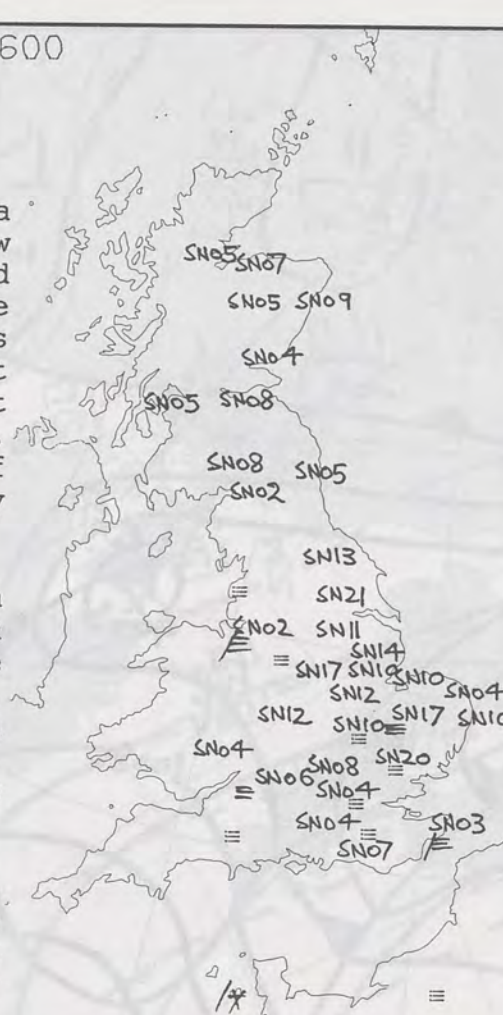 600
a
w
d
e
s
t
t
f
y
SN05 SN07
SN05 SN09
SN04
SN05 SN08
SN08 SN05
SN02
SN13
SN21
SN02 SN11
SN14
SN17 SN19 SN10
SN12 SN04
SN12 SN10 SN17 SN10
SN04 SN20
SN06 SN08
SN04
SN04 SN03
SN07